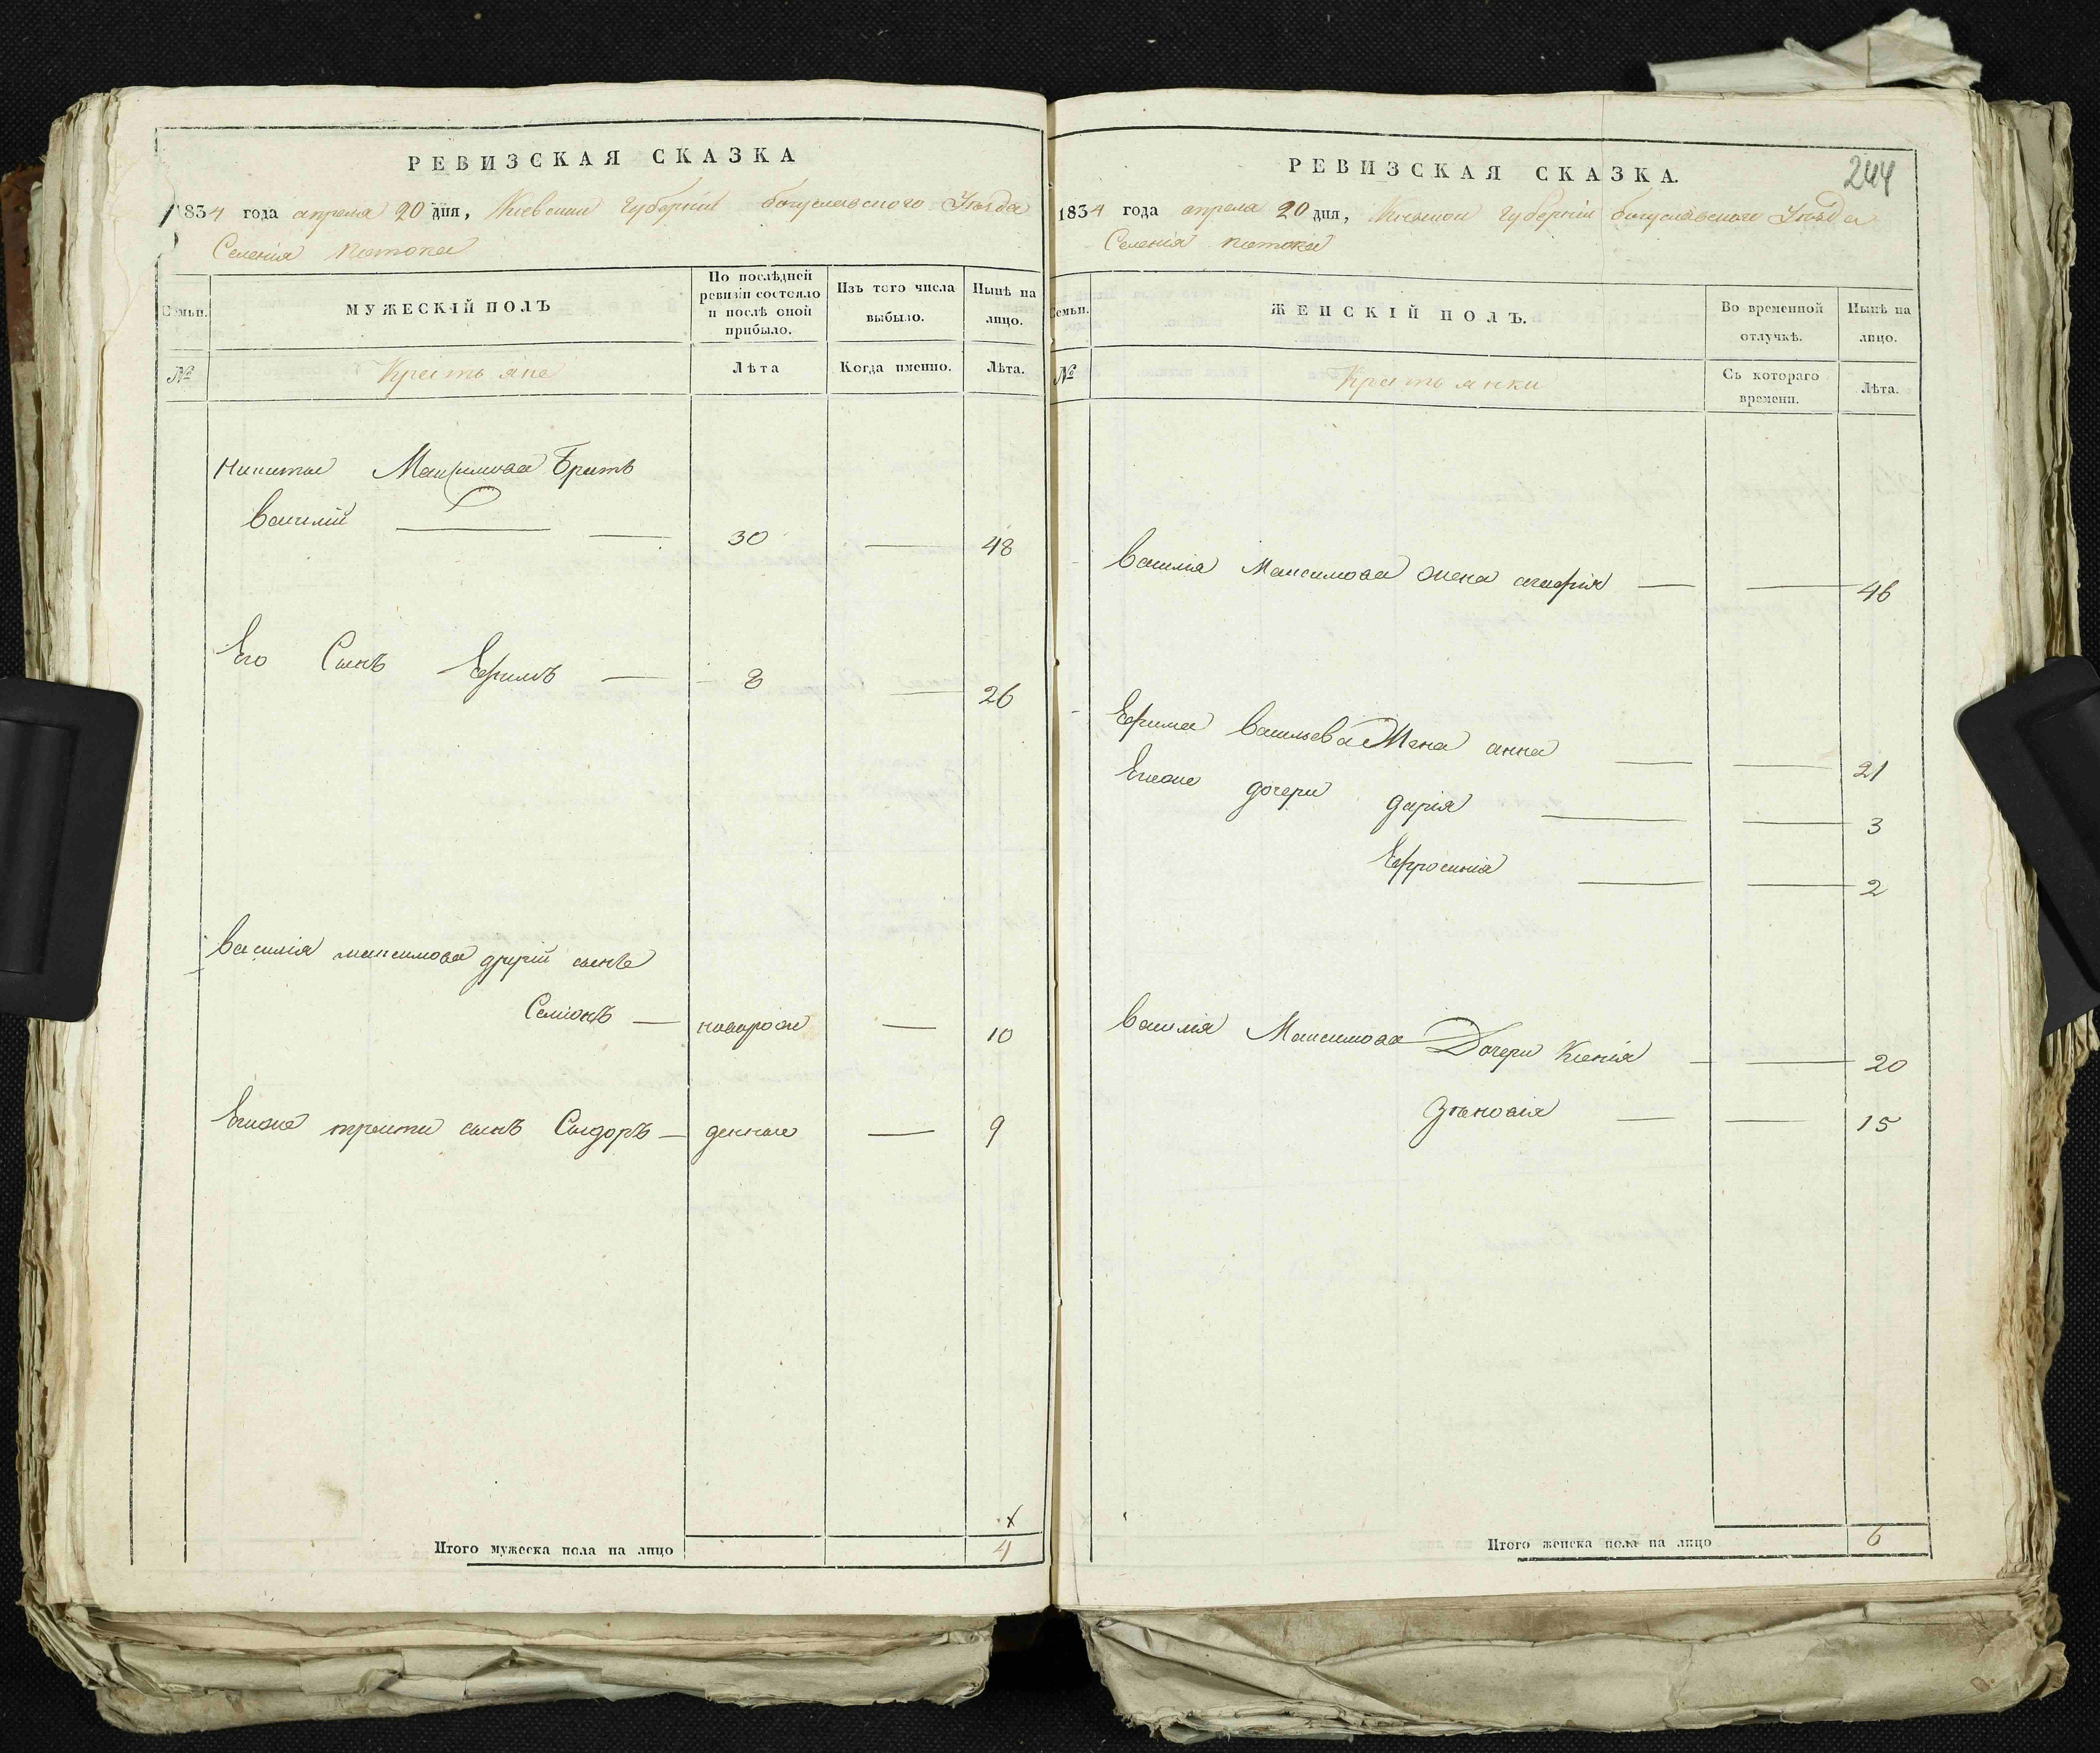 РЕВИЗСКАЯ СКАЗКА
1834 года апреля 20 дня, Киевской Губерніи богуславского Уѣзда
Селенія Потока
Семьи.
МУЖЕСКІЙ ПОЛЪ
По послѣдней ревизіи состояло и послѣ оной прибыло.
Изъ того числа выбыло.
Нынѣ на лицо.
№
Крестьяне
Лѣта
Когда именно.
Лѣта.
Никиты Максимова Братъ
Василій — — 30 — 48
Его Сынъ Ефимъ — 8 — 26
Василія максимова другій сынъ
Семіонъ — новорож — 10
Егоже трети сынъ Сыдоръ — денные — 9
Итого мужеска пола на лицо 4
РЕВИЗСКАЯ СКАЗКА.
244
1834 года апреля 20 дня, Киевской Губерніи богуславского Уѣзда
Селенія Потока
Семьи.
ЖЕНСКІЙ ПОЛЪ.
Во временной отлучкѣ.
Нынѣ на лицо.
№
Крестьянки
Съ котораго времени.
Лѣта.
Василія Максимова жена агафія — — 46
Ефима Васильева Жена анна — — 21
Егоже дочери дарія — — 3
Ефросинія — — 2
Василія Максимова Дочери Ксенія — — 20
Зѣновія — — 15
Итого женска пола на лицо 6